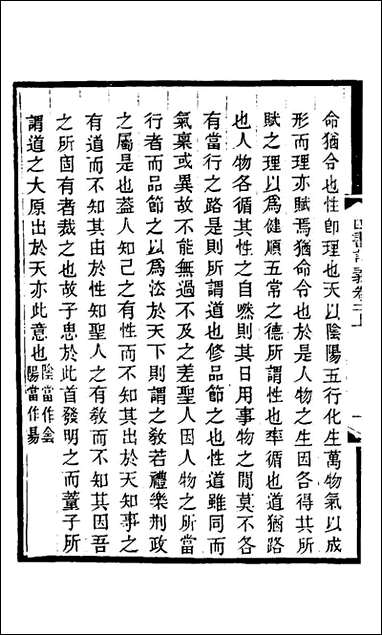 命猶令也性卽理也天以陰陽五行化生萬物氣以成
形而理亦賦焉猶命令也於是人物之生因各得其所
賦之理以爲健順五常之德所謂性也率循也道猶路
也人物各循其性之自然則其日用事物之閒莫不各
有當行之路是則所謂道也修品節之也性道雖同而
氣稟或異故不能無過不及之差聖人因人物之所當
行者而品節之以爲法於天下則謂之敎若禮樂刑政
之屬是也蓋人知己之有性而不知其出於天知事之
有道而不知其由於性知聖人之有敎而不知其因吾
之所固有者裁之也故子思於此首發明之而董子所
謂道之大原出於天亦此意也
陰當作侌
陽當作昜